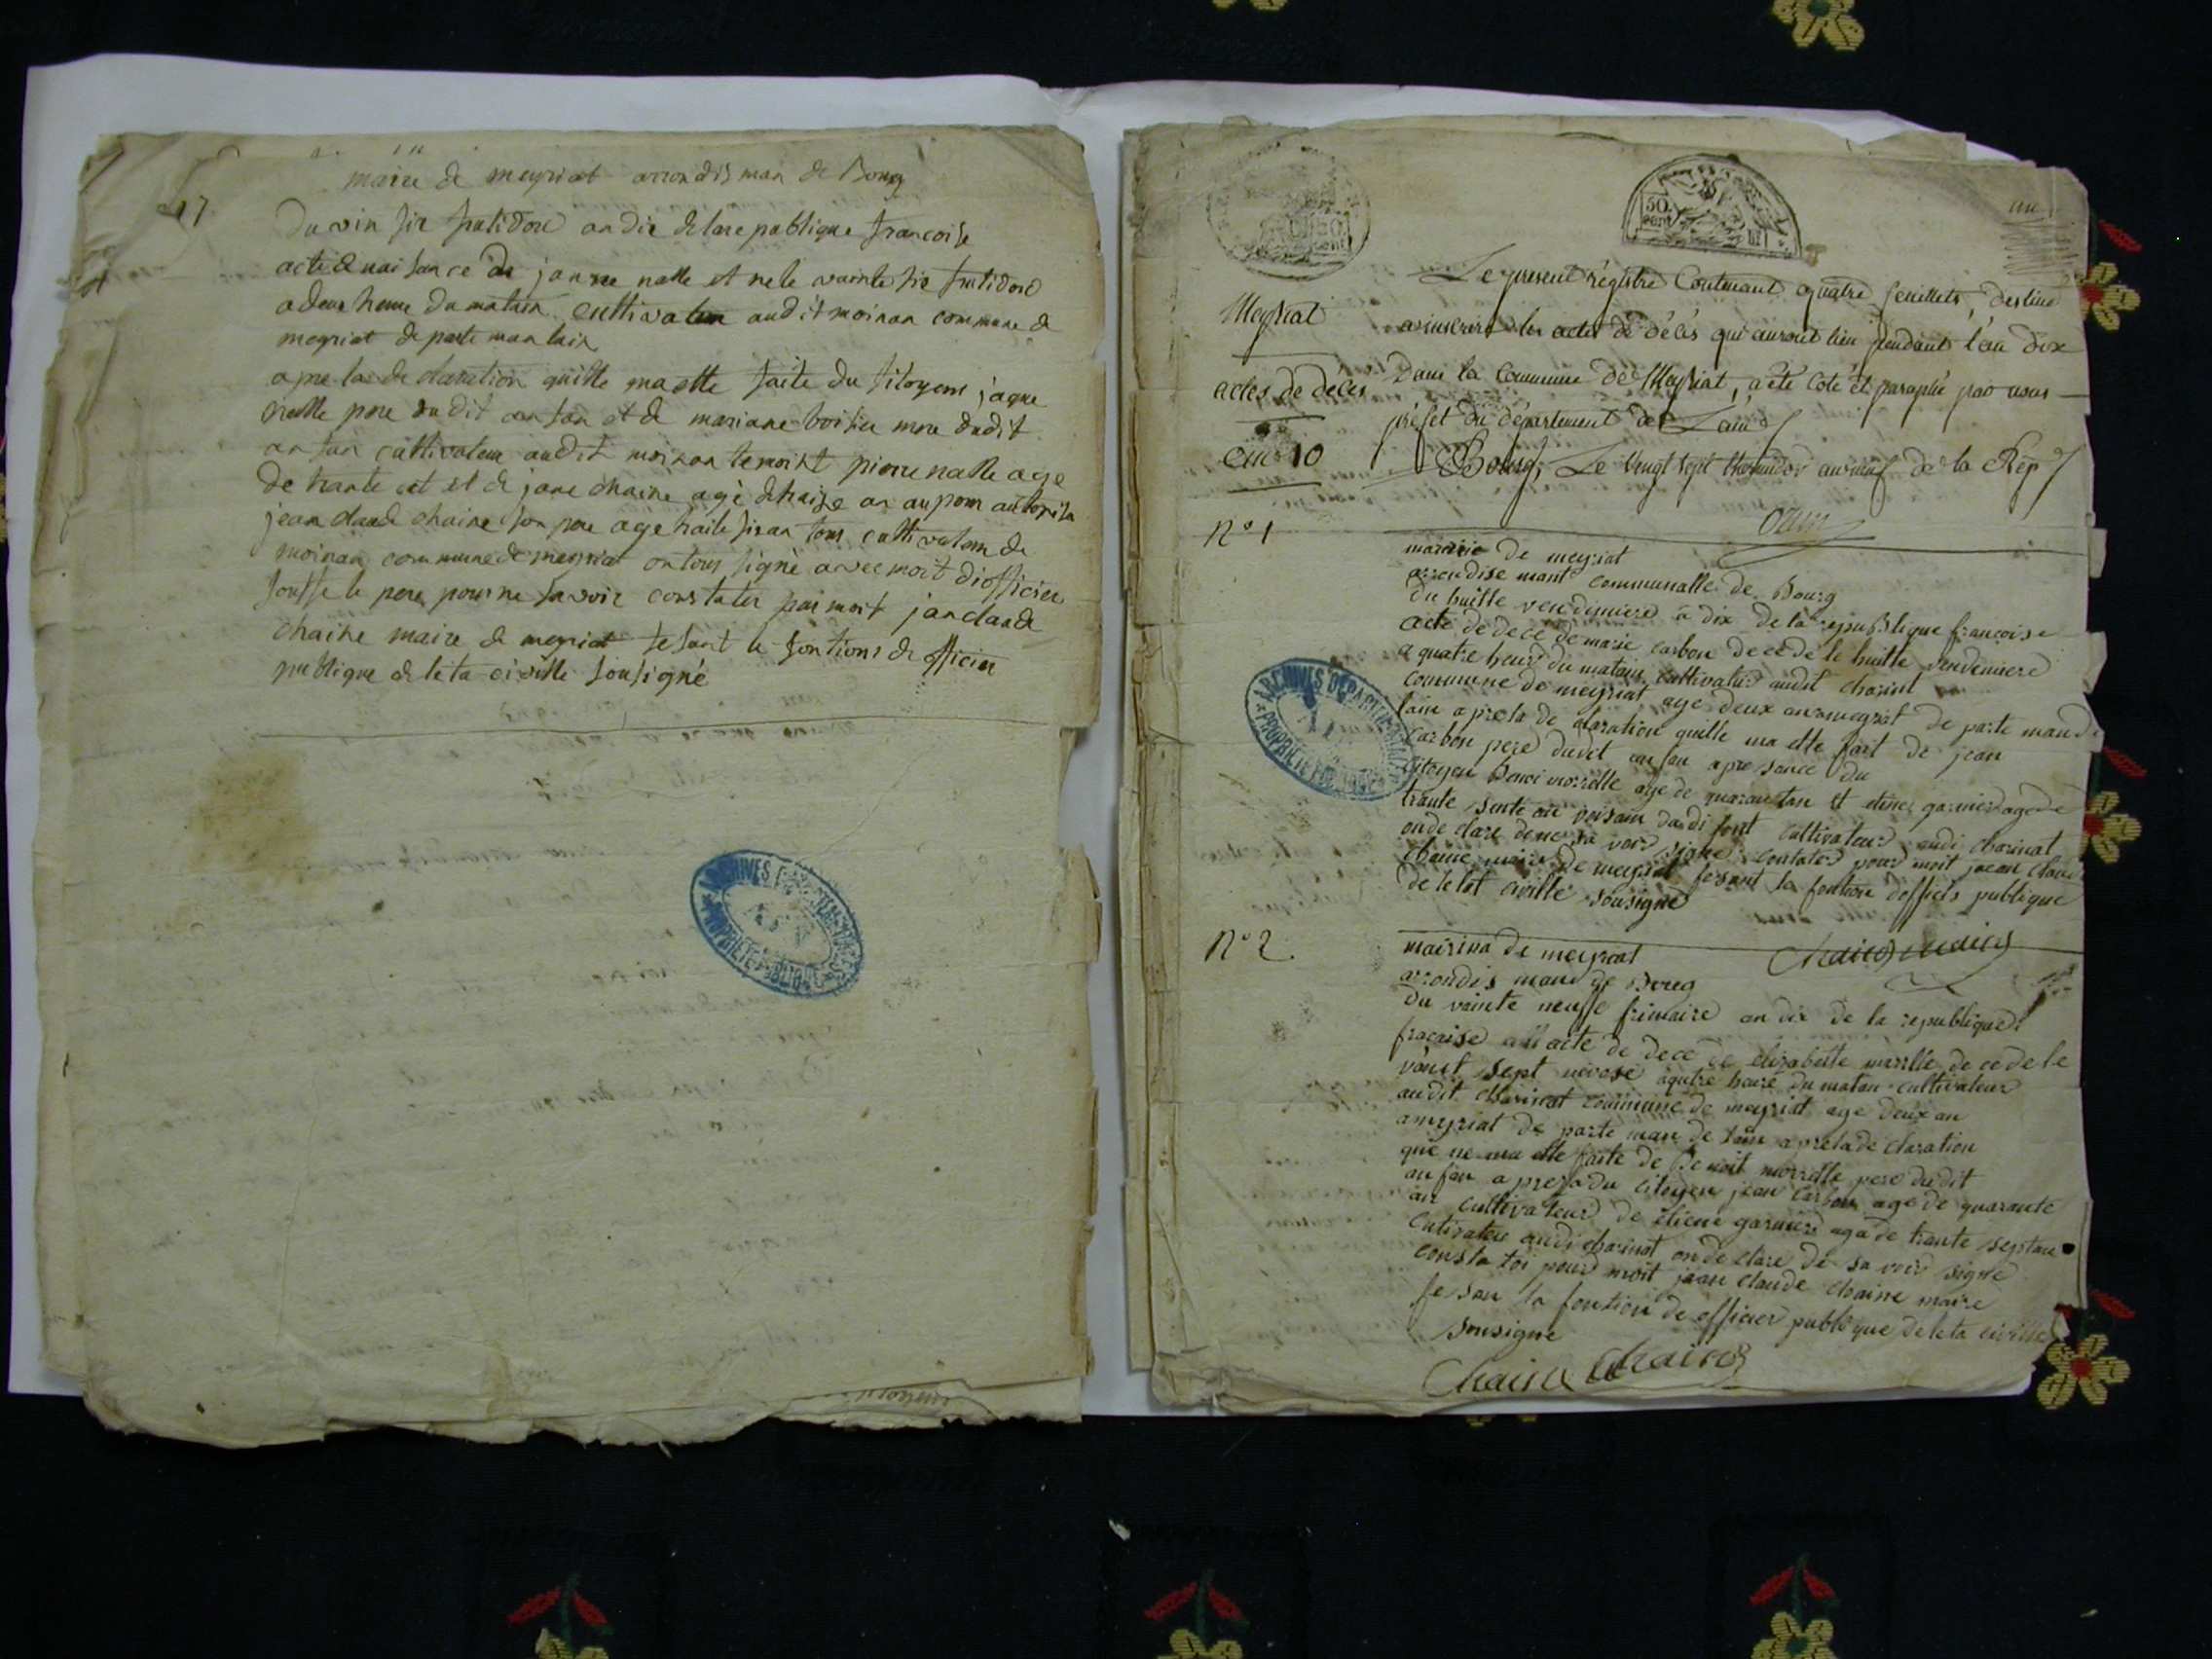 maire de meyriat arrondisman de Bourg
17
Du vin sir frutidore an dix de lare publique francoise
acte de naisance de janne nalle et ne le vainte sis frutidore
a deux heure du matain cultivateur audit moinan commune de
meyriat de parte man lain
apre la de claration quille ma ette faite du sitoyens jaque
nalle pere dudit anfan et de mariane boisier mere dudit
anfan cultivateur audit moinan temoint pierre nalle age
de trante et de jane chaine agé de
jean claude chaine son pere age tous cultivateur de
moinan commune de meyriat on tous signé avec moit di officier
le pere pour ne savoir constater par moit jan claude
chaine maire de meyriat fesant le fontions de officier
publique de leta civille sousigné
ARCHIVES DEPARTEMENTALES
AIN
PROPRIETE PUBLIQUE
un
50 cent
Le present régistre Contenant quatre feuillets, destiné
Meyriat
a inscrire les actes de décès qui auront lieu pendant l'an dix
actes de décès
Dans la Commune de Meyriat, a été coté et paraphé par nous
préfet du département de L'ain
an 10
Bourg, Le Vingt sept thermidor an neuf de la Rép
N° 1
mairie de meyriat
arrondisemant communalle de Bourg
Du huitte vendemiere a dix de la republique francoise
acte de dece de marie carbon decede le huitte vendemiere
a quatre heur du matain cultivatur audit charinat
commune de meyriat age deux an meyriat de parte mand
lain apre la de claration quille ma ette fait de jean
Carbon pere dudit anfan apre sance du
citoyen Benoi morelle age de quarantan et etine garnier age de
trante sente an voisain dudi font cultivateur audi charinat
onde clare de ne sa voir signe constater pour moit jaean claude
chaine maire de meyriat fesant la fontion doffices publique
de letat civille sousigne
Chaine maire
N° 2
mairie de meyriat
arrondis mand de Boureg
Du vainte neuffe frimaire an dix de la republique
fracaise acte de dece de elizabette morelle de cede le
vainct sept nevose a quatre heure du matan cultivateur
audit charinat commune de meyriat age deux an
a meyriat de parte man de lain apre la de claration
que ne ma ette faite de Benoit morrelle pere dudit
anfan a presa du citoyen jean Carbon age de quarante
an cultivateur de etiene garnier aga de trante septan
cutivateur audi charinat onde clare de sa voir signe
consta toi pour moit jean claude chaine maire
fesan la fontion de officier publique de leta civille
sousigne
Chaine Chaine